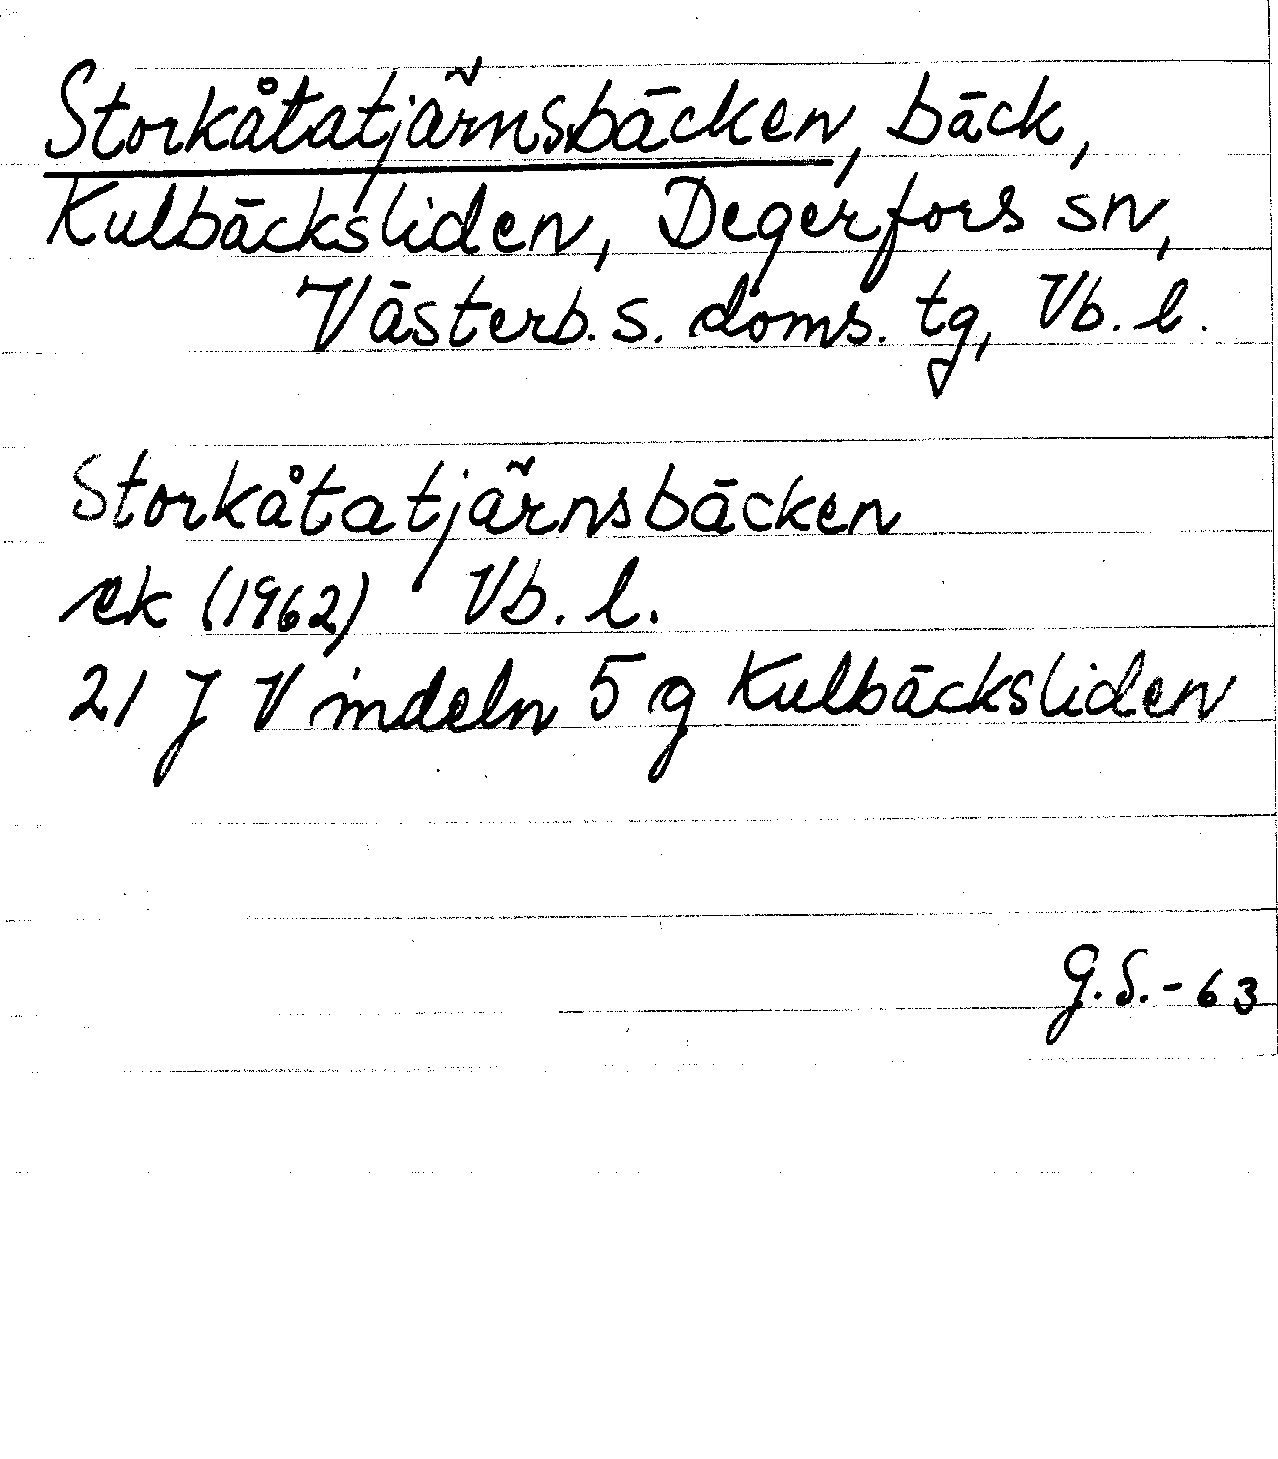 Storkåtatjärnsbäcken, bäck,
Kulbäcksliden, Degerfors sn,
Västerb. s. doms. tg, Vb. l.
Storkåtatjärnsbäcken
ek (1962) Vb. l.
21 J Vindeln 5 g Kulbäcksliden
G.S.-63